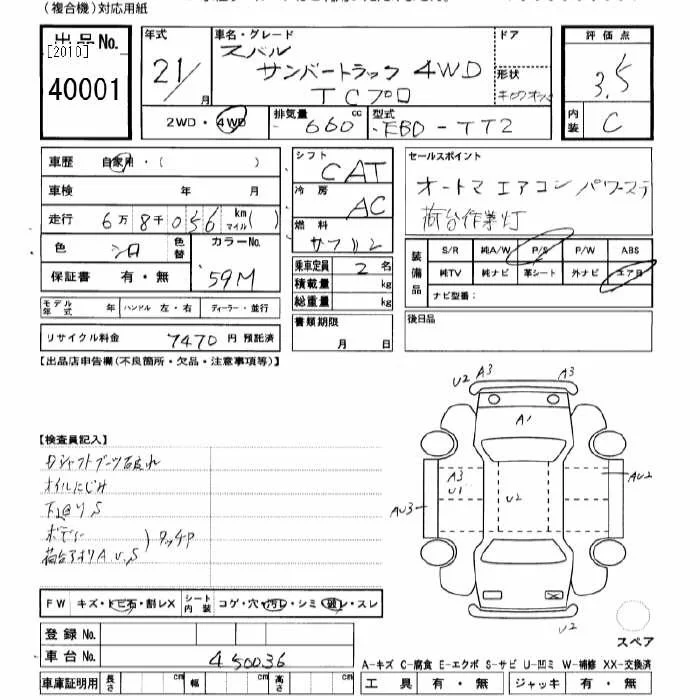 (複合機)対応用紙
出品No.
[2010]
40001
年式
21/月
車名・グレード
スバル
サンバートラック 4WD
TCプロ
ドア
形状
評価点
3.5
内装
C
2WD・4WD
排気量 660 cc
型式 EBD-TT2
車歴 自家用・( )
車検 年 月
走行 6万8千056 km マイル( )
色 シロ
色替
カラーNo.
59M
保証書 有・無
モデル年式 年
ハンドル 左・右
ディーラー・並行
リサイクル料金 7470 円 預託済
シフト CAT
冷房 AC
燃料
乗車定員 2名
積載量 kg
総重量 kg
書類期限
月 日
セールスポイント
オートマ エアコン パワーステ
荷台作業灯
装備品
S/R 純A/W P/S P/W ABS
純TV 純ナビ 革シート 外ナビ エアB
ナビ型番:
後日品
【出品店申告欄(不良箇所・欠品・注意事項等)】
【検査員記入】
オイルにじみ
下回りS
ボデー
荷台アオリA、U、S
タッチP
U2 A3 A3
A1
A3
U1
U2
AU3
AU2
U2
スペア
FW キズ・トビ石・割レX
シート内装 コゲ・穴・汚レ・シミ・破レ・スレ
登録No.
車台No. 450036
車庫証明用 長さ cm 幅 cm 高さ cm
A-キズ C-腐食 E-エクボ S-サビ U-凹ミ W-補修 XX-交換済
工具 有・無 ジャッキ 有・無